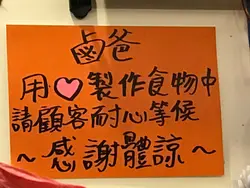 鹵爸
用♡製作食物中
請顧客耐心等候
~感謝體諒~